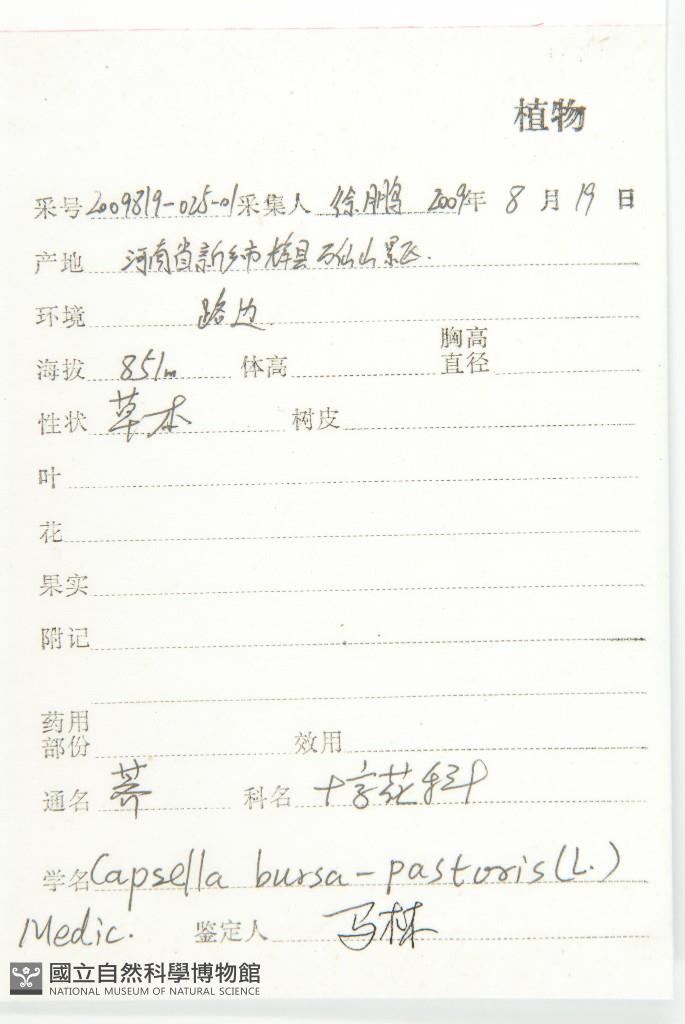 植物
采号 2009819-025-01 采集人 徐鹏 2009年 8 月 19 日
产地 河南省新乡市辉县万仙山景区.
环境 路边
海拔 851m 体高 胸高直径
性状 草本 树皮
叶
花
果实
附记
药用部份 效用
通名 荠 科名 十字花科
学名 Capsella bursa-pastoris (L.)
Medic. 鉴定人 马林
國立自然科學博物館
NATIONAL MUSEUM OF NATURAL SCIENCE